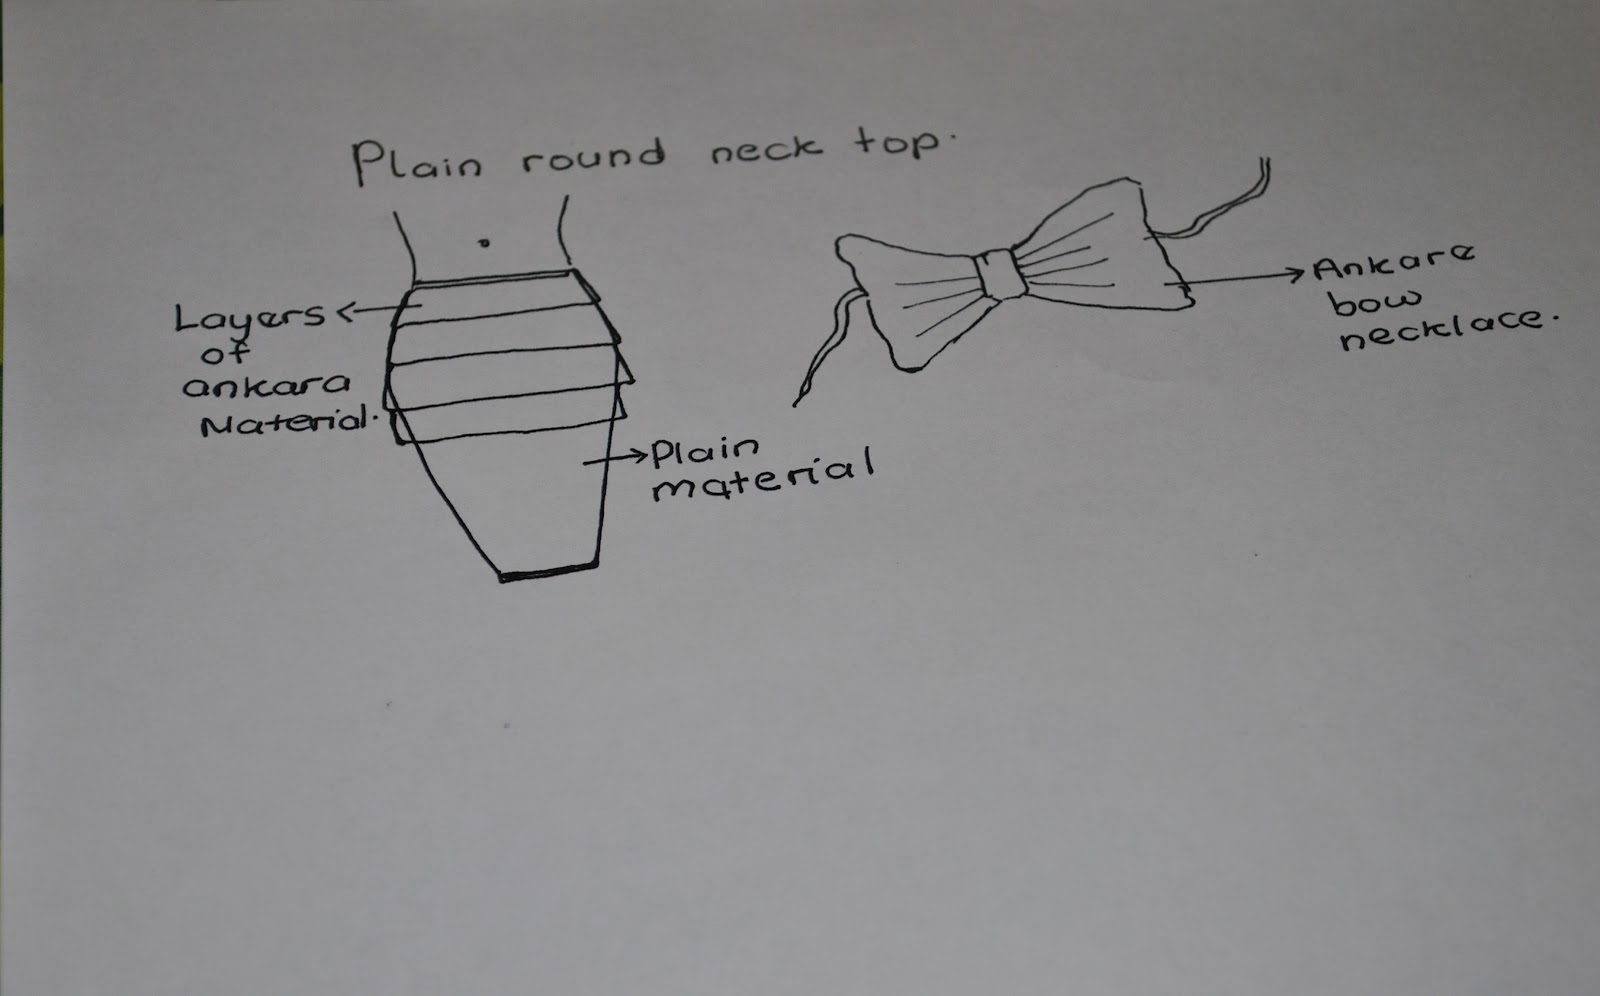 Plain round neck top.
Layers
of
ankara
Material.
Plain
material
Ankare
bow
necklace.